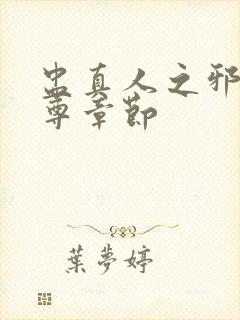 蛊真人之邪
尊章節
葉夢婷